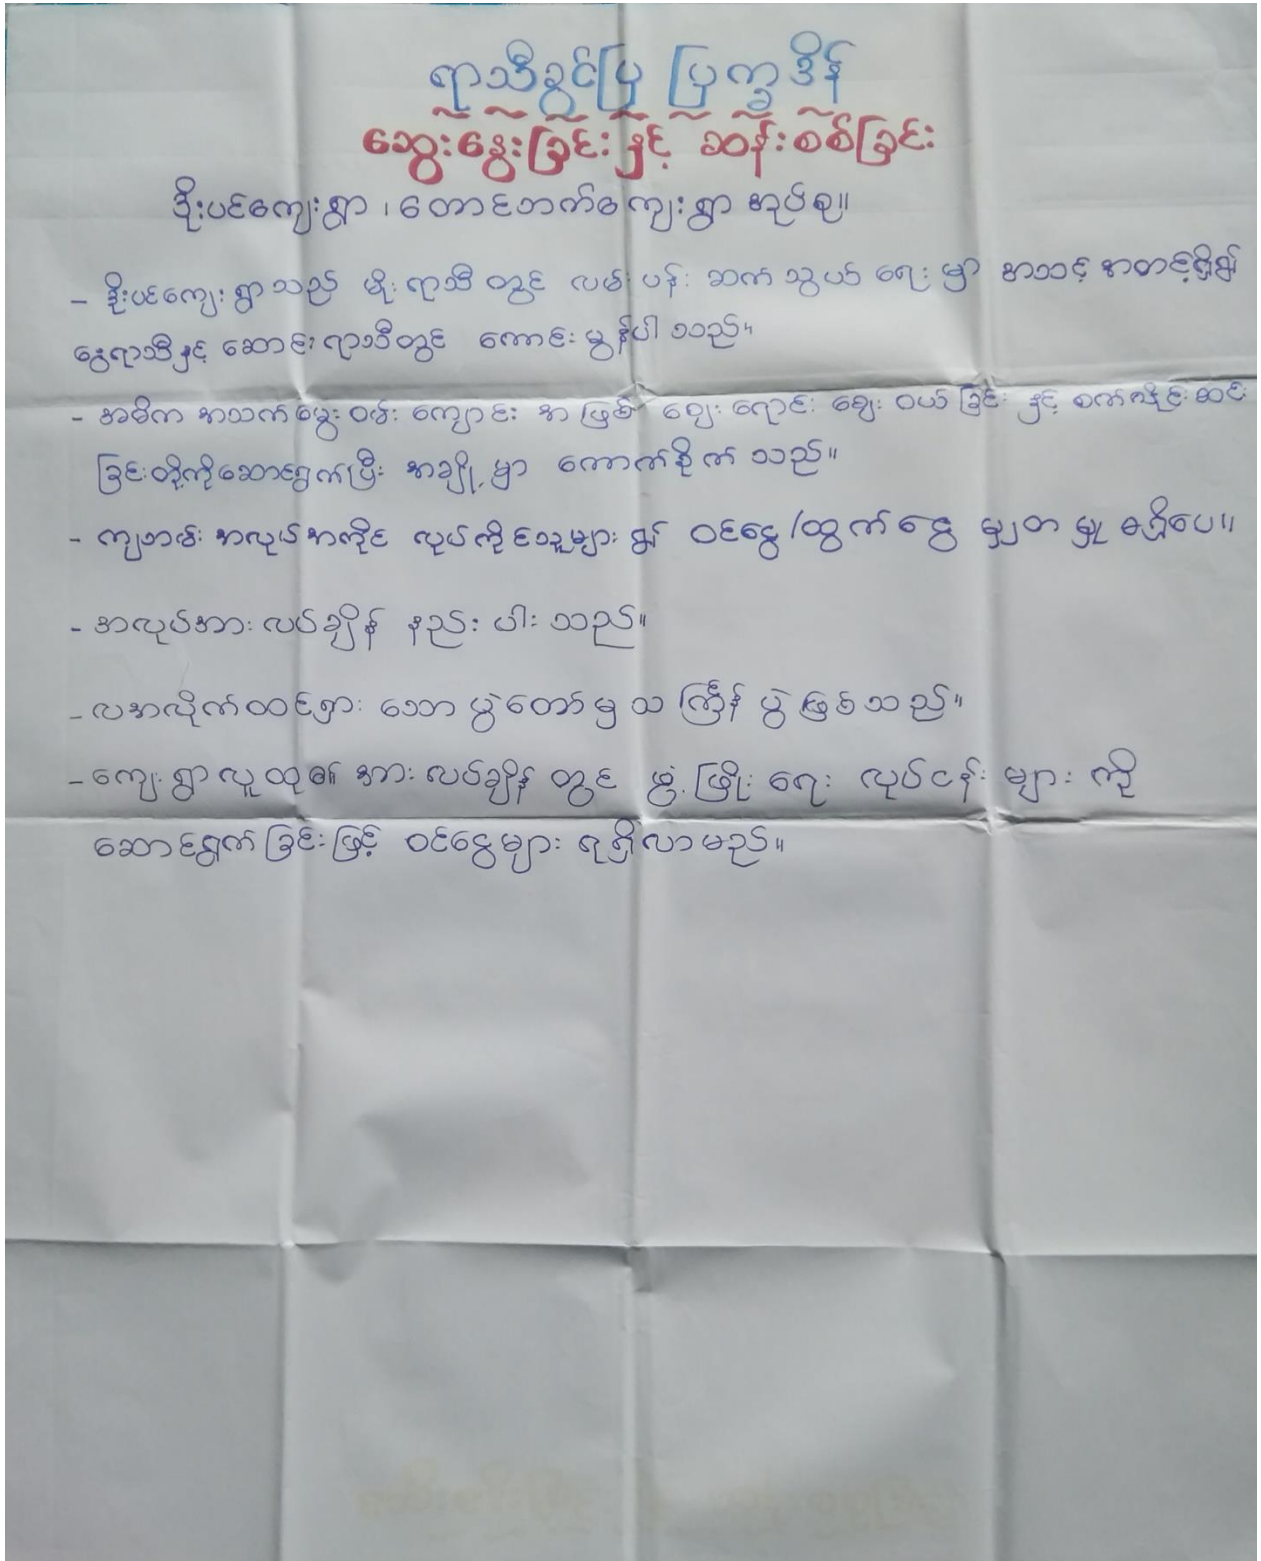 ရာသီခွင်ပြ ပြက္ခဒိန်
ဆွေးနွေးခြင်းနှင့် ဆန်းစစ်ခြင်း
ဒိုးပင်ကျေးရွာ ၊ တောင်ဘက်ကျေးရွာအုပ်စု။
- ဒိုးပင်ကျေးရွာသည် မိုးရာသီတွင် လမ်းပန်းဆက်သွယ်ရေးမှာ အသင့်အတင့်ရှိ၍
နွေရာသီနှင့် ဆောင်းရာသီတွင် ကောင်းမွန်ပါသည်။
- အဓိက အသက်မွေးဝမ်းကျောင်းအဖြစ် ဈေးရောင်း ဈေးဝယ်ခြင်းနှင့် စက်လှိုင်းဆင်
ခြင်းတို့ကိုဆောင်ရွက်ပြီး အချို့မှာ ကောက်စိုက်သည်။
- ကျဘမ်းအလုပ်အကိုင် လုပ်ကိုင်သူများ၍ ဝင်ငွေ/ထွက်ငွေ မျှတမှု မရှိပေ။
- အလုပ်အားလပ်ချိန် နည်းပါးသည်။
- လအလိုက်ထင်ရှားသောပွဲတော်မှ သင်္ကြန်ပွဲဖြစ်သည်။
- ကျေးရွာလူထု၏ အားလပ်ချိန်တွင် ဖွံ့ဖြိုးရေးလုပ်ငန်းများကို
ဆောင်ရွက်ခြင်းဖြင့် ဝင်ငွေများ ရရှိလာမည်။